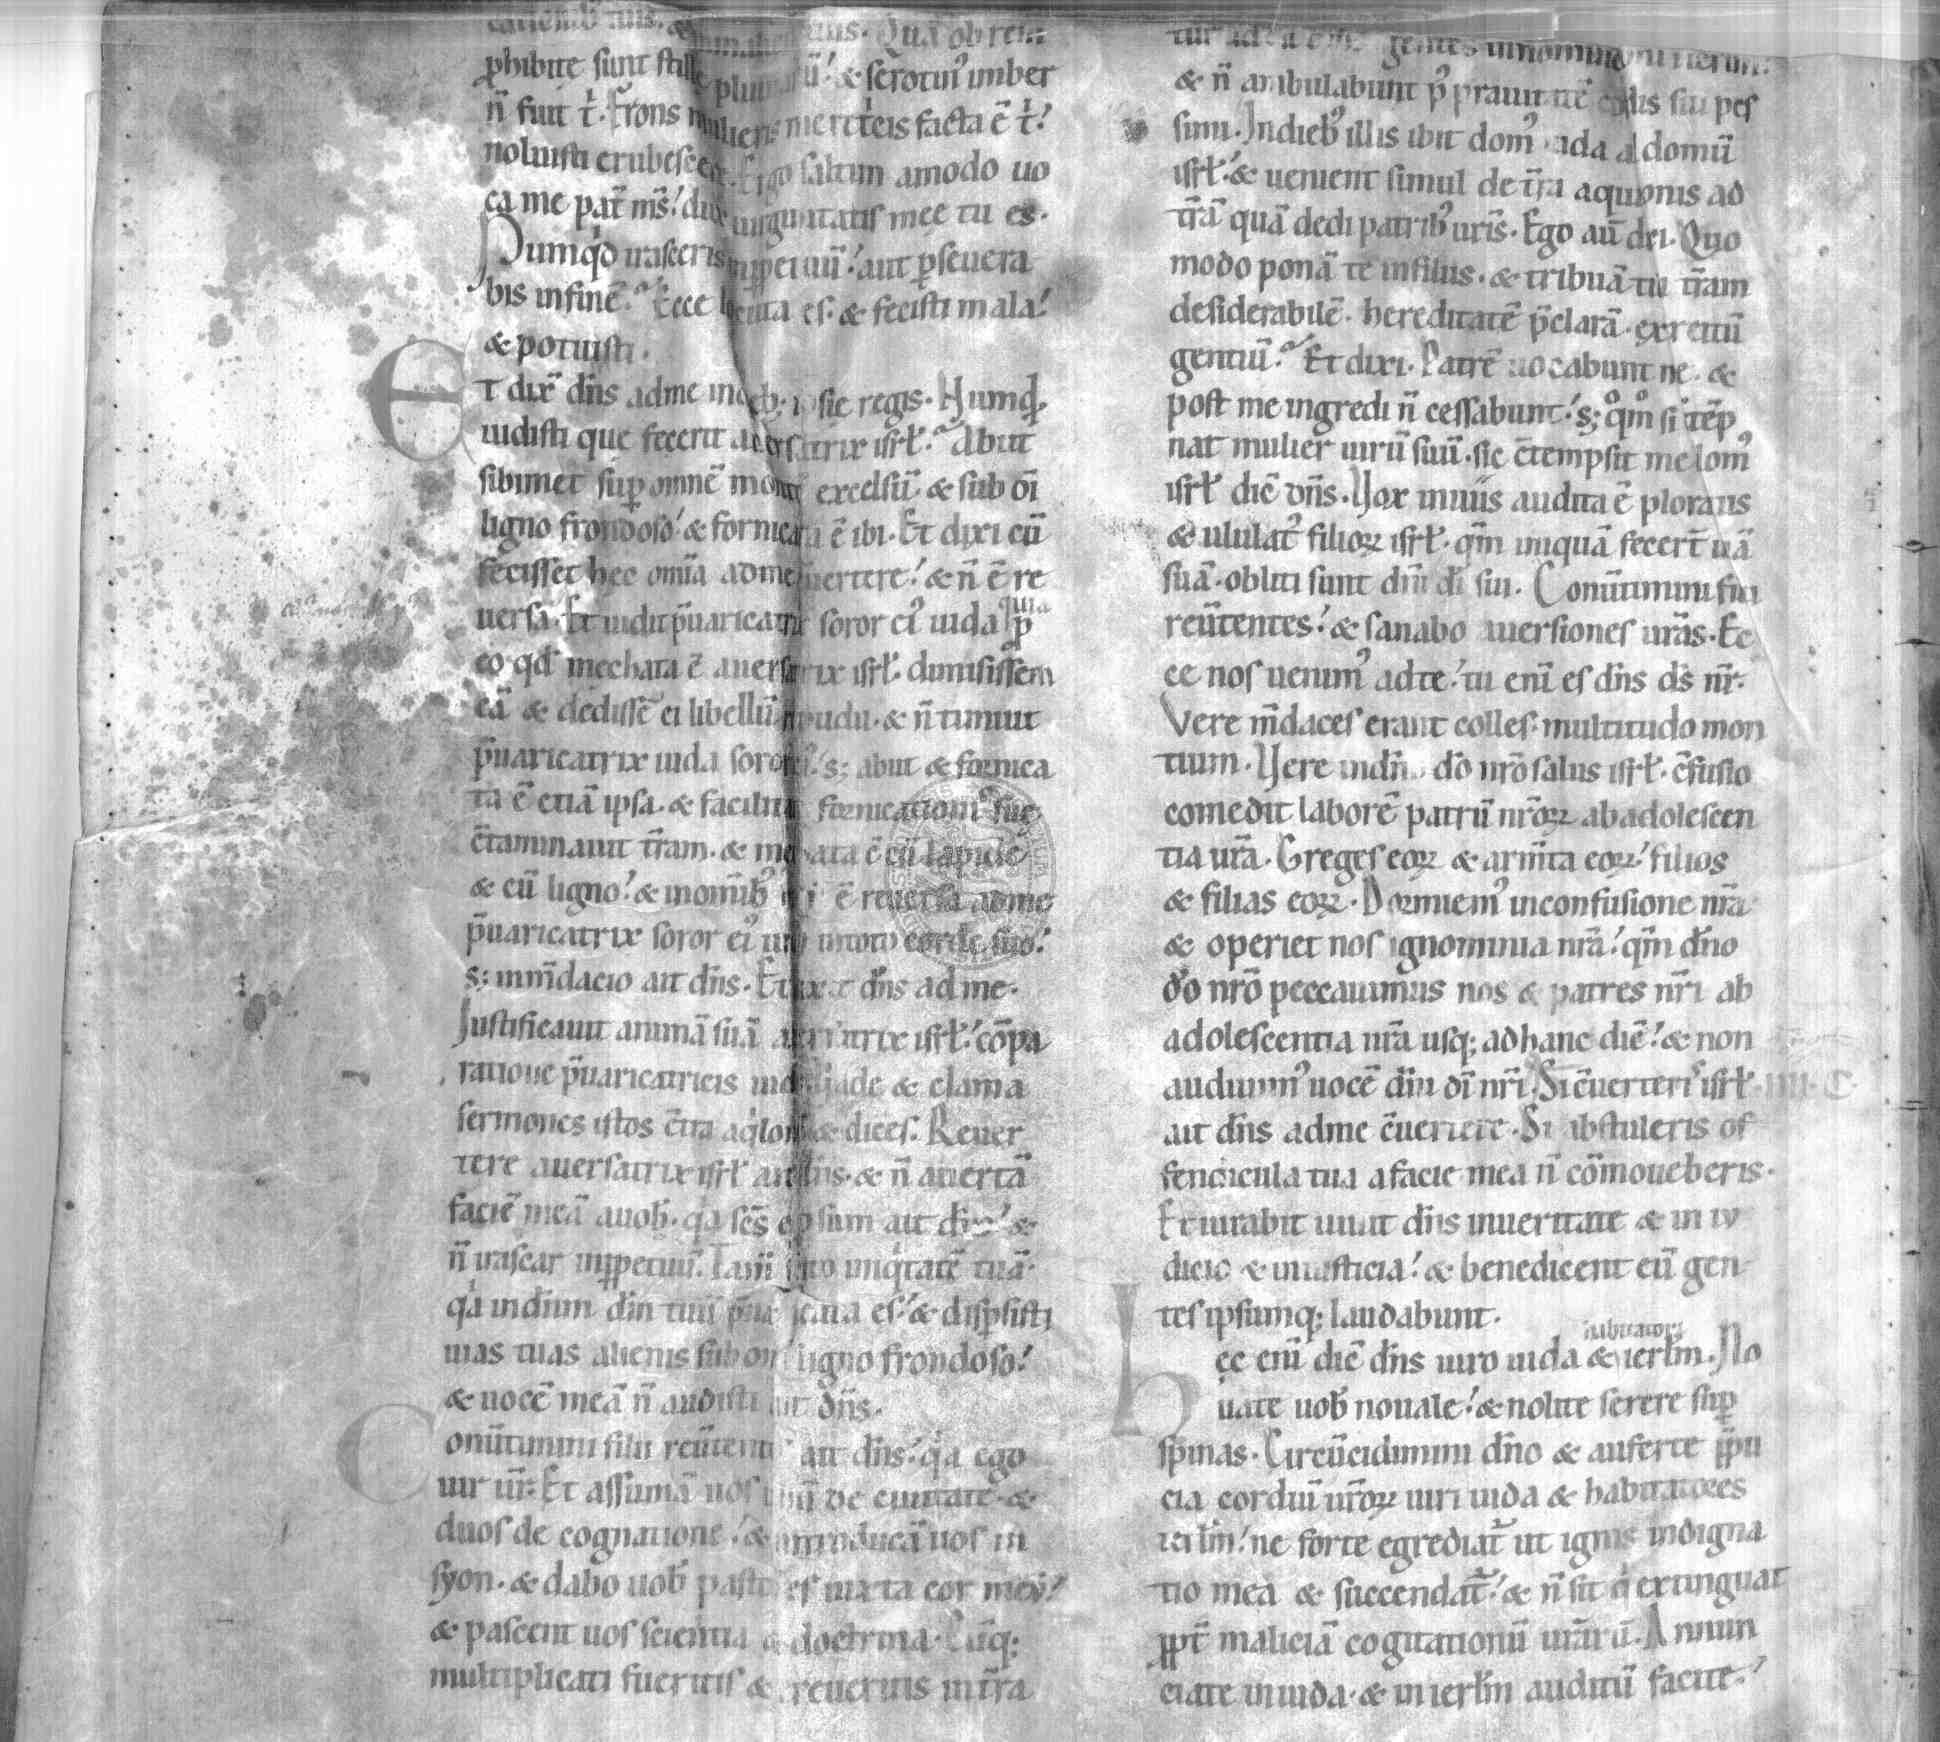 tuis. Quā ob rem
ꝓhibite sunt stille pluuiarū! & serotinꝰ imber
n̄ fuit t̄. Frons mulieris meret͛cis facta ē t̄!
noluisti erubescere. Ergo saltim amodo uo
ca me pat̄ ms̄! dux uirginitatis mee tu es.
Numqͥd irasceris inꝑpetuū! aut ꝑseuera
bis infinē? Ecce locuta es. & fecisti mala!
& potuisti.
Et dix̄ dn̄s adme indieb; iosie regis. Numqͥd
uidisti que fecerit auersatrix isrł? Abiit
sibimet suꝑ omnē montē excelsū & sub oī
ligno frondoso! & fornicata ē ibi. Et dixi cū
fecisset hec om̄ia adme reuertere! & n̄ ē re
uersa. Et uidit p̄uaricatrix soror eiꝰ iuda quia ꝓ
eo qđ mechata ē auersatrix isrł. dimisissem
eā & dedissē ei libellū repudii. & n̄ timuit
p̄uaricatrix iuda soror eiꝰ! s; abiit & fornica
ta ē etiā ipsa. & facilitate fornicationis sue
c̄taminauit t̄ram. & mechata ē cū lapide
& cū ligno! & inomībꝰ his n̄ ē reuersa adme
p̄uaricatrix soror eiꝰ iuda intoto corde suo!
s; inm̄dacio ait dn̄s. Et dixit dn̄s ad me.
Iustificauit animā suā auersatrix isrł! cōpa
ratione p̄uaricatricis iude. Uade & clama
sermones istos c̄tra aqͥlonē & dices. Reuer
tere auersatrix isrł ait dn̄s. & n̄ auertā
faciē meā auob̄. qͥa sc̄s ego sum ait dn̄s! &
n̄ irascar inꝑpetuū. Tam̄ scito iniqͥtatē tuā.
qͥa indn̄m dm̄ tuū p̄uaricata es! & disꝑsisti
uias tuas alienis sub omī ligno frondoso!
& uocē meā n̄ audisti ait dn̄s.
Conūtimini filii reūtentes ait dn̄s! qͥa ego
uir ur̄. Et assumā uos unū de ciuitate &
duos de cognatione! & introducā uos in
syon. & dabo uob̄ pastores iuxta cor meū!
& pascent uos scientia & doctrina. Cūq;
multiplicati fueritis & creueritis int̄ra
tur ad eā om̄s gentes innomine
& n̄ ambulabunt ꝑ prauitatē cordis sui pes
simi. Indiebꝰ illis ibit domꝰ iuda ad domū
isrł! & uenient simul de t̄ra aquilonis ad
t̄rā quā dedi patribꝰ ur̄is. Ego aū dixi. Quo
modo ponā te infilios. & tribuā tibi t̄ram
desiderabilē. hereditatē p̄clarā. exercituū
gentiū? Et dixi. Patrē uocabunt me. &
post me ingredi n̄ cessabunt! s; qͦmͦ si c̄tēp
nat mulier uirū suū. sic c̄tempsit me domꝰ
isrł dic̄ dn̄s. Uox inuiis audita ē ploratus
& ululatꝰ filioꝝ isrł. qm̄ iniquā fecer̄t uiā
suā. obliti sunt dn̄i di sui. Conūtimini filii
reūtentes! & sanabo auersiones ur̄as. Ec
ce nos uenimꝰ adte! tu enī es dn̄s ds̄ nr̄.
Vere m̄daces erant colles. multitudo mon
tium. Uere indn̄o dō nr̄o salus isrł. c̄fusio
comedit laborē patrū nr̄oꝝ abadolescen
tia nr̄a. Greges eoꝝ & arm̄ta eoꝝ! filios
& filias eoꝝ. Dormiemꝰ inconfusione nr̄a
& operiet nos ignominia nr̄a! qm̄ dn̄o
dō nr̄o peccauimus nos & patres nr̄i ab
adolescentia nr̄a usq; adhanc diē! & non
audiuimꝰ uocē dn̄i dī nr̄i. Si c̄uerteris isrł IIII. C.
ait dn̄s adme c̄uertere. Si abstuleris of
fendicula tua afacie mea n̄ cōmoueberis.
Et iurabit uiuit dn̄s inueritate & in iu
dicio & iniusticia! & benedicent eū gen
tes ipsumq; laudabunt.
Hęc enī dic̄ dn̄s uiro iuda & habitatori ierłm. No
uate uob̄ nouale! & nolite serere suꝑ
spinas. Circūcidimini dn̄o & auferte p̄pu
cia cordiū ur̄oꝝ uiri iuda & habitatores
ierłm! ne forte egrediat̄ ut ignis indigna
tio mea & succendat̄! & n̄ sit qͥ extinguat
ꝓpt̄ maliciā cogitationū ur̄arū. Annun
ciate iniuda. & in ierłm auditū facite!